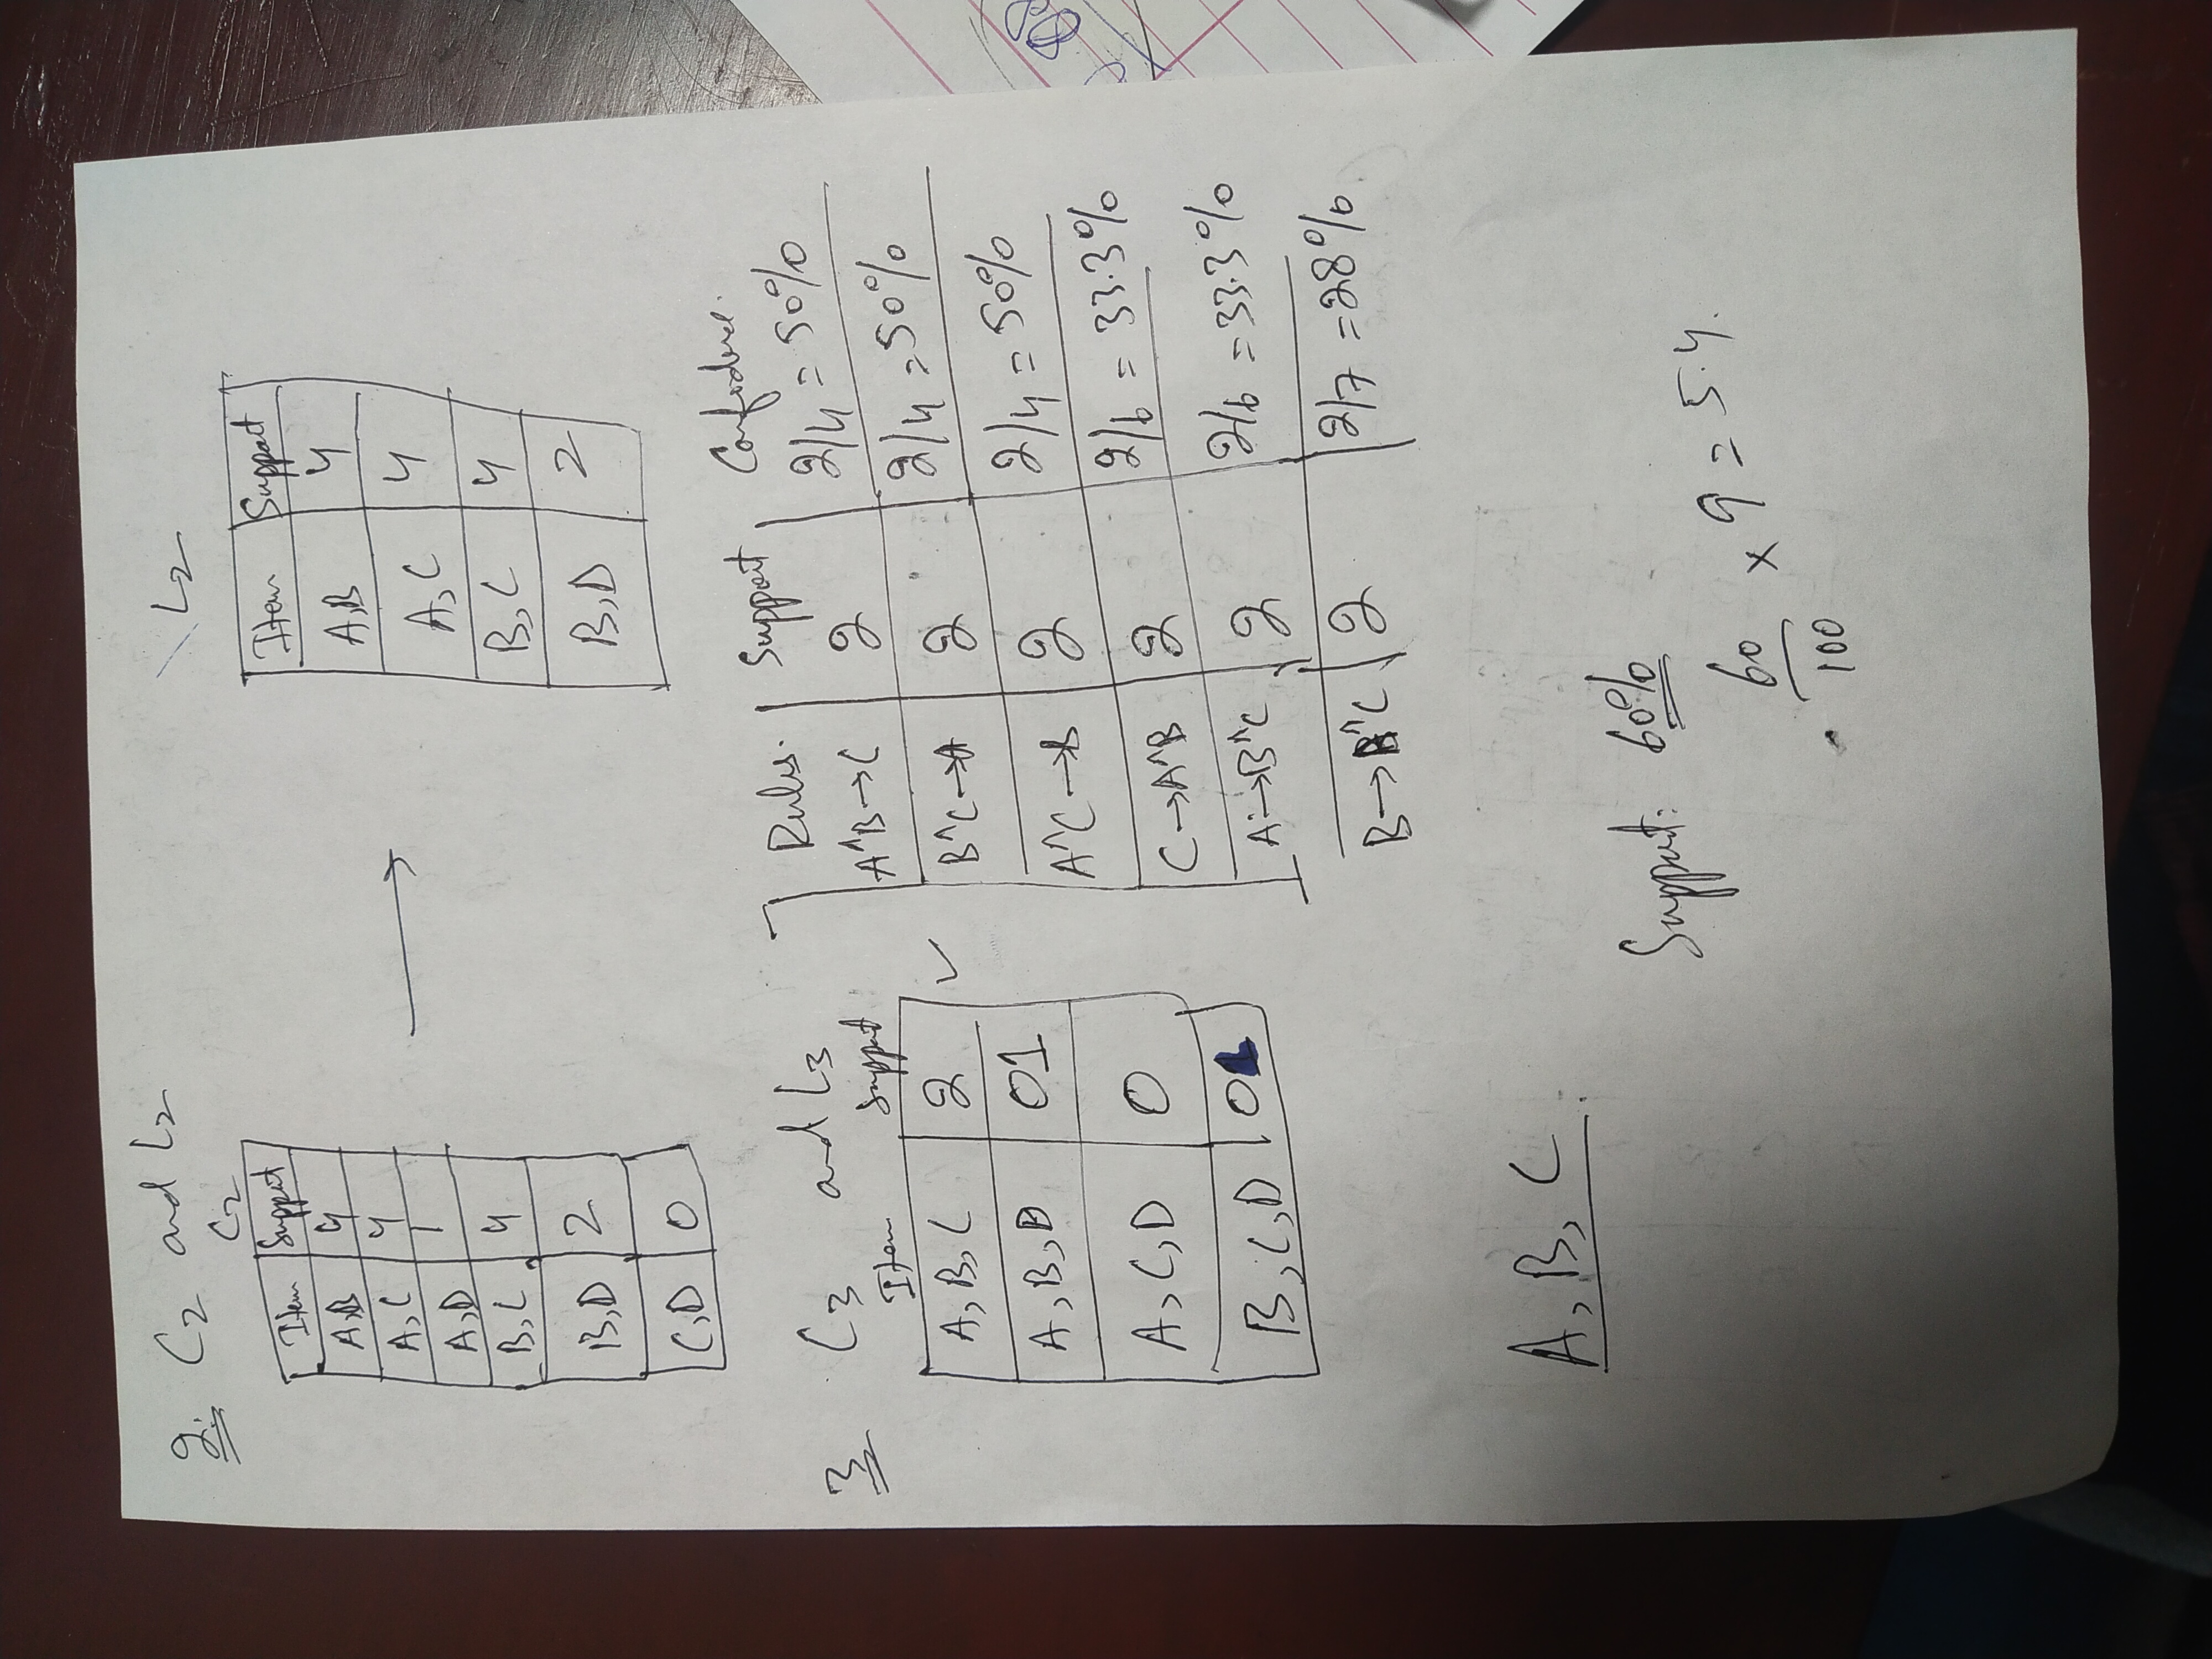 2. C2 and L2
C2
Item Support
A,B 4
A,C 4
A,D 1
B,C 4
B,D 2
C,D 0
L2
Item Support
A,B 4
A,C 4
B,C 4
B,D 2
3 C3 and L3
Item Support
A,B,C 2 ✓
A,B,D 01
A,C,D 0
B,C,D 01
Rules. Support Confidence.
A^B→C 2 2/4 = 50%
B^C→A 2 2/4 = 50%
A^C→B 2 2/4 = 50%
C→A^B 2 2/6 = 33.3%
A→B^C 2 2/6 = 33.3%
B→A^C 2 2/7 = 28%
A, B, C
Support: 60%
60/100 × 9 = 5.4.